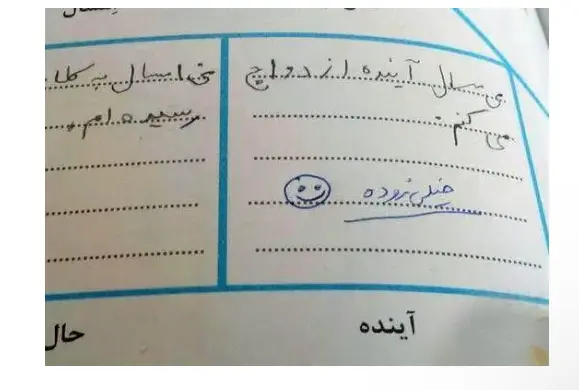 من سال آینده ازدواج
می کنم.
خیلی زوده
آینده
من امسال به کلا
رسیده ام.
حال